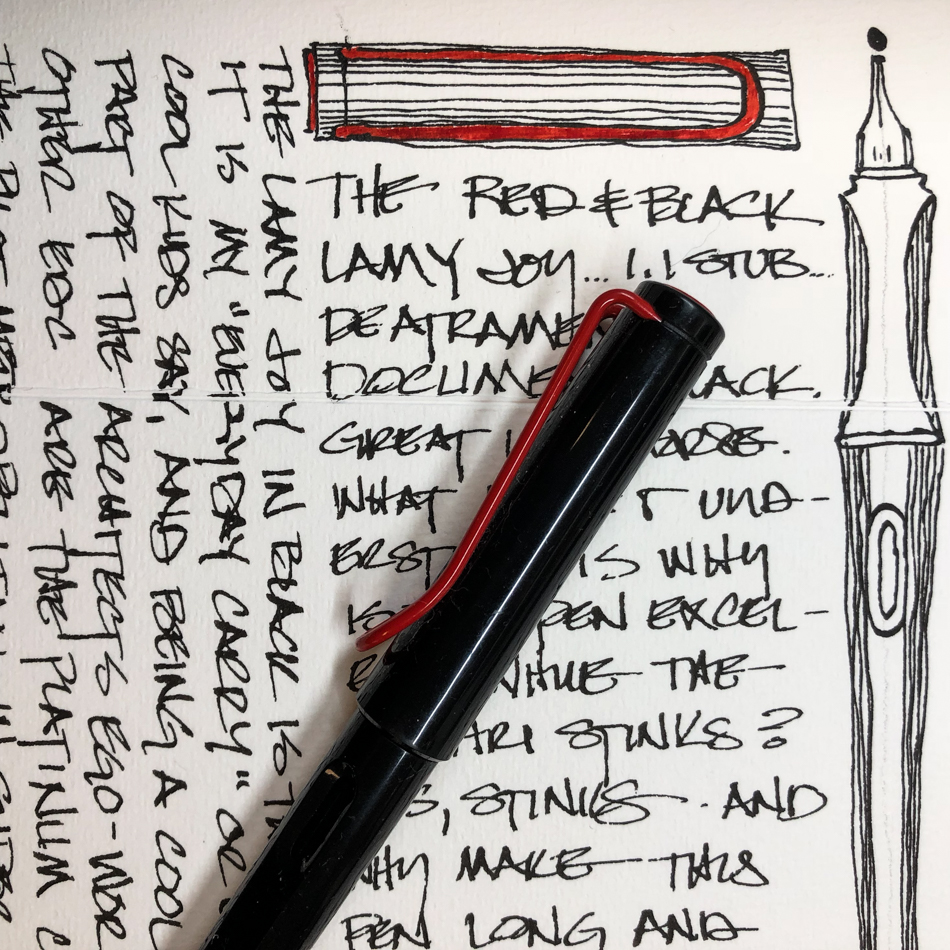 THE RED & BLACK
LAMY JOY... 1.1 STUB...
DEATRAME
DOCUME ACK.
GREAT
WHAT T UND-
ERST IS WHY
PEN EXCEL-
WHILE THE
ARI STINKS?
S, STINKS. AND
WHY MAKE THIS
PEN LONG AND
THE LAMY JOY IN BLACK IS TH
IT IS MY "EVERYDAY CARRY" OR
COOL KIDS SAY, AND BEING A COOL
PART OF THE ARCHITECT'S EGO-WOR
OTHER EDC ARE THE PLATINUM C